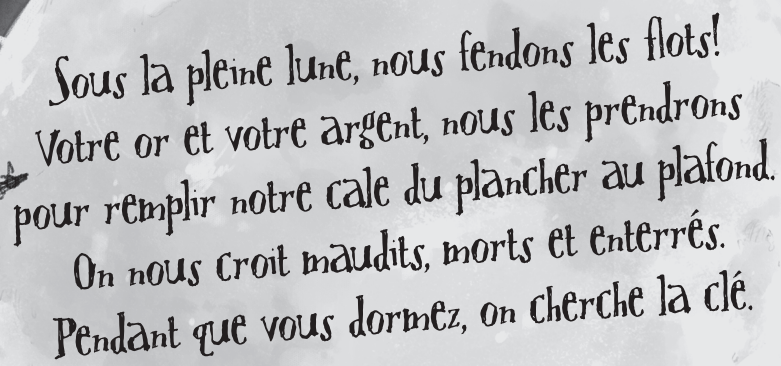 Sous la pleine lune, nous fendons les flots!
Votre or et votre argent, nous les prendrons
pour remplir notre cale du plancher au plafond.
On nous croit maudits, morts et enterrés.
Pendant que vous dormez, on cherche la clé.